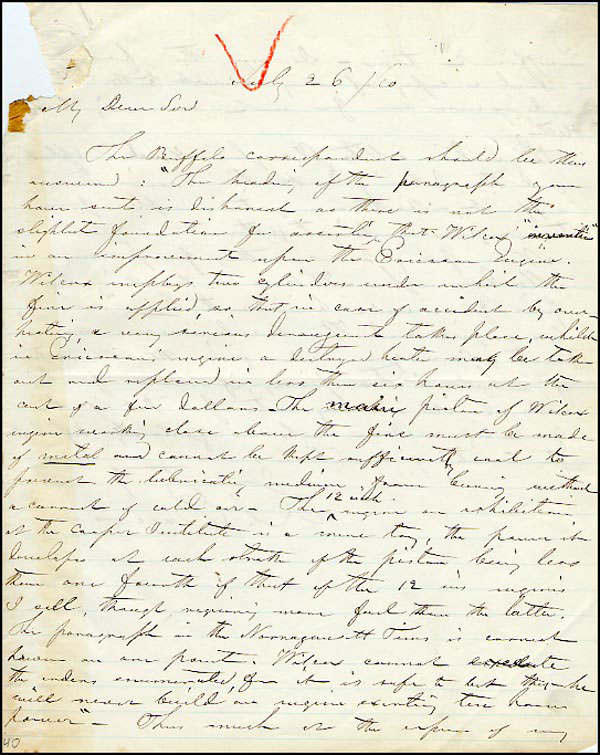 July 26/60
My Dear Sir
The Buffalo correspondent should be thus
answered: "The heading of the paragraph you
have sent is dishonest as there is not the
slightest foundation for asserting that Wilcox "invention"
is an improvement upon the Ericsson Engine.
Wilcox employs two cylinders under which the
fire is applied, so that in case of accident by over-
heating, a very serious derangement takes place, while
in Ericsson's engine a destroyed heater may be taken
out and replaced in less than six hours at the
cost of a few dollars – The main piston of Wilcox
engine working close above the fire must be made
of metal and cannot be kept sufficiently cool to
prevent the lubricating medium from burning without
a current of cold air – The 12 inch engine on exhibition
at the Cooper Institute is a mere toy, the power it
developes at each stroke of the piston being less
than one fourth of that of the 12 in engines
I sell, though requiring more fuel than the latter.
The paragraph in the Narragansett Times is correct
however on one point. Wilcox cannot execute
the orders enumerated, for it is safe to bet that he
will never build an engine exerting ten horse
power" – Thus much as the reply of my
40